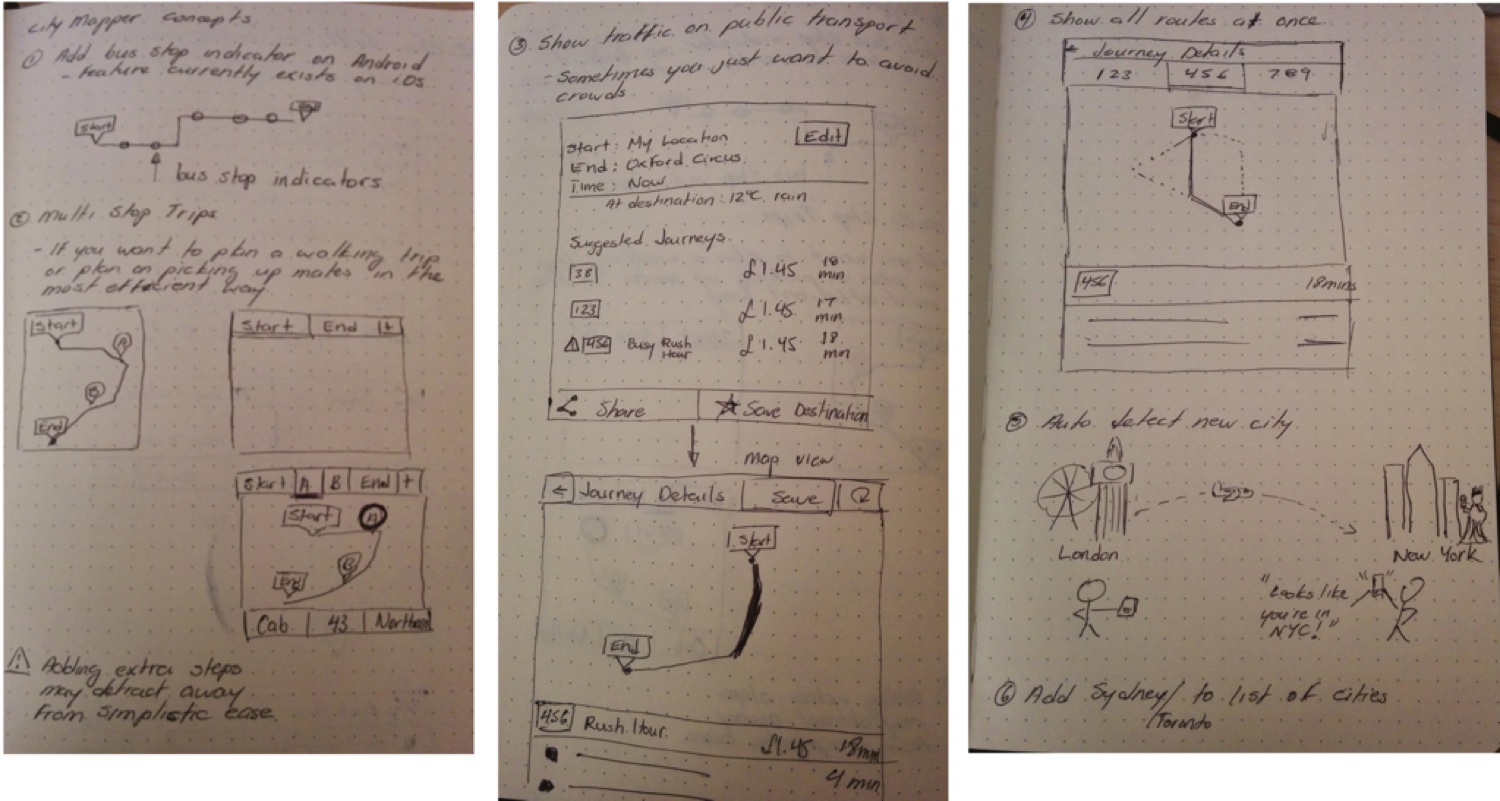 City Mapper concepts.
① Add bus stop indicator on Android
- Feature currently exists on iOs
Start
End
bus stop indicators
② Multi Stop Trips
- If you want to plan a walking trip
or plan on picking up mates in the
most efficient way.
Start
A
B
End
Start End +
Start A B End +
Start
A
B
End
Cab 43 Northern
⚠ Adding extra steps
may detract away
from simplistic ease.
③ Show traffic on public transport
- Sometimes you just want to avoid
crowds
Start: My Location
Edit
End: Oxford Circus
Time: Now
At destination: 12°C rain
Suggested Journeys.
38 £1.45 18 min
123 £1.45 17 min
⚠ 456 Busy Rush Hour £1.45 18 min
Share ☆ Save Destination
map view
← Journey Details Save
Start
End
456 Rush Hour. £1.45 18min
4 min
④ Show all routes at once
← Journey Details
123 456 789
Start
End
456 18mins
⑤ Auto detect new city
London
New York
"Looks like
you're in
NYC!"
⑥ Add Sydney/ to list of cities
/Toronto